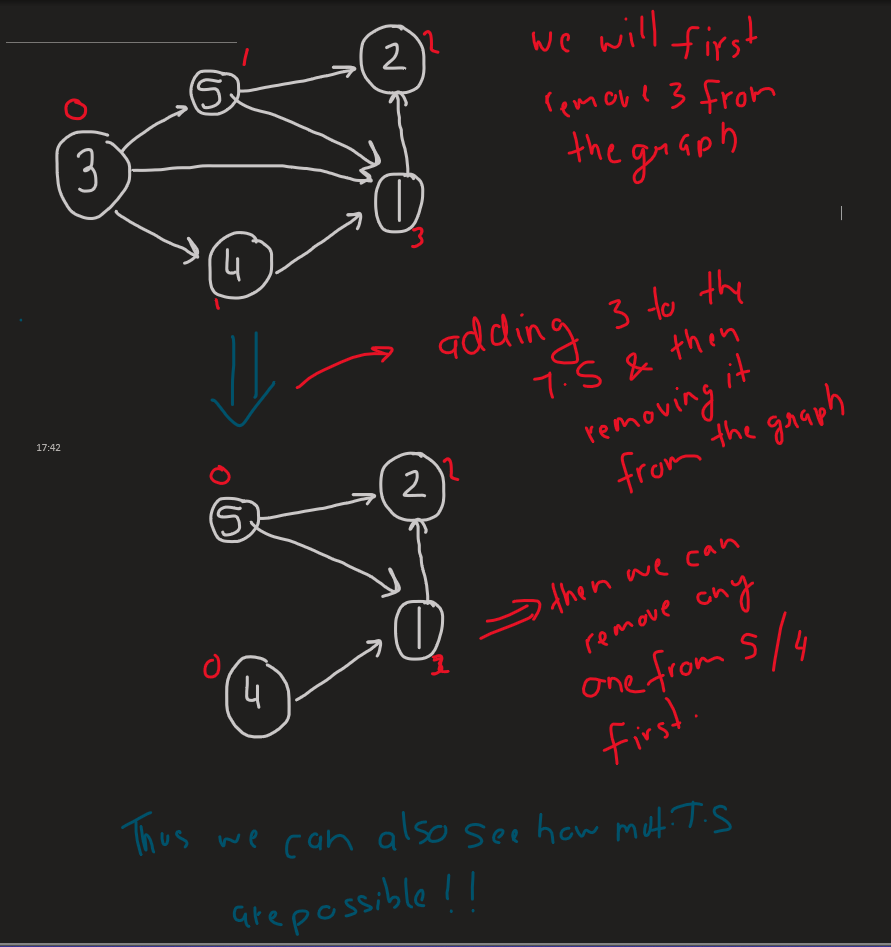 we will first
remove 3 from
the graph
0
1
2
5
2
3
1
3
4
1
adding 3 to the
T.S & then
removing it
from the graph
17:42
0
2
2
5
1
2
0
4
then we can
remove any
one from 5/4
first.
Thus we can also see how mult. T.S
are possible!!